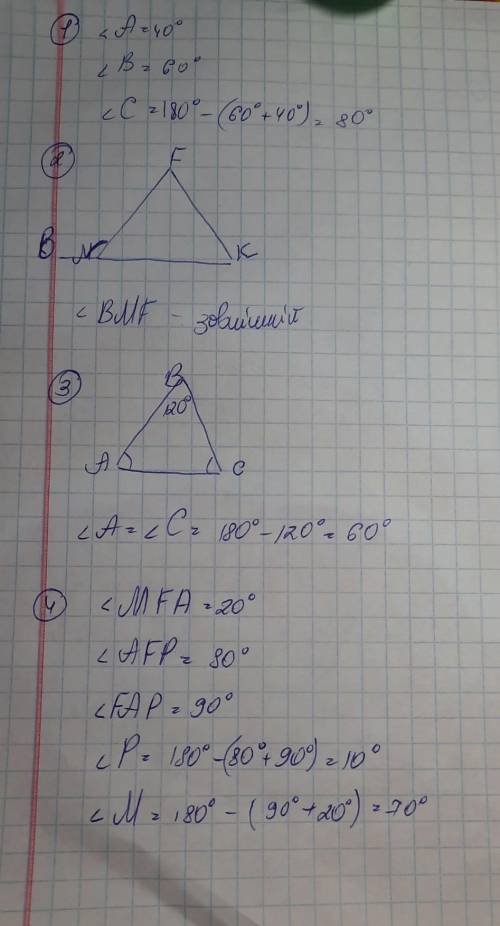 1 ∠A=40°
∠B=60°
∠C=180°-(60°+40°)=80°
2 F
B M K
∠BMF - зовнішній
3 B
120°
A C
∠A=∠C=180°-120°=60°
4 ∠MFA=20°
∠AFP=80°
∠FAP=90°
∠P=180°-(80°+90°)=10°
∠M=180°-(90°+20°)=70°